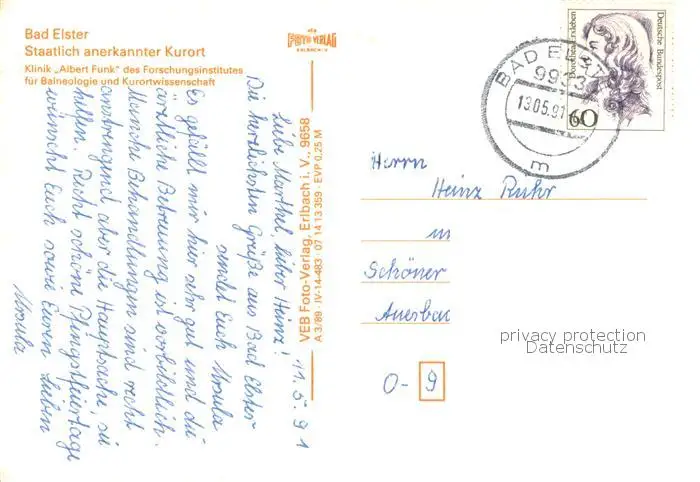 Bad Elster
Staatlich anerkannter Kurort
Klinik „Albert Funk“ des Forschungsinstitutes
für Balneologie und Kurortwissenschaft
FOTO-VERLAG
ERLBACH
VEB Foto-Verlag, Erlbach i. V., 9658
A 3/89 · IV-14-483 · 07 14 13 359 · EVP 0,25 M
11.5.91
Liebe Marthel, lieber Heinz!
Die herzlichsten Grüße aus Bad Elster
sendet Euch Ursula
Es gefällt mir hier sehr gut und die
ärztliche Betreuung ist vorbildlich.
Manche Behandlungen sind recht
anstrengend aber die Hauptsache, sie
helfen. Recht schöne Pfingstfeiertage
wünscht Euch sowie Euren Lieben
Ursula
BAD ELSTER
9933
13.05.91
m
Dorothea Erxleben
Deutsche Bundespost
60
Herrn
Heinz Ruhr
in
Schöner
Auerbac
O-9
privacy protection
Datenschutz